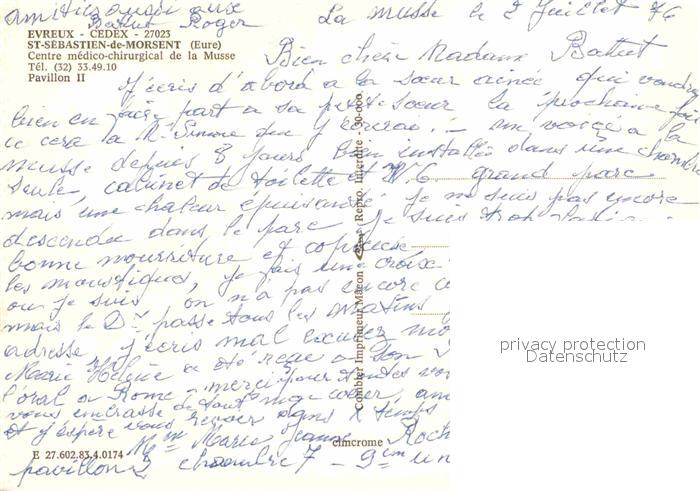 amitiés aussi aux
Battut Roger
La musse le 2 Juillet 76
EVREUX - CEDEX - 27023
ST-SÉBASTIEN-de-MORSENT (Eure)
Centre médico-chirurgical de la Musse
Tél. (32) 33.49.10
Pavillon II
Bien chère Madame Battut
J'écris d'abord a la sœur ainée qui voudra
bien en faire part a sa petite sœur la prochaine fois
ce cera la Simone que J'écrirai. me voici a la
musse depuis 8 jours bien installée dans une chambre
seule, cabinet de toilette et W.C. grand parc
mais une chaleur épuisante je ne suis pas encore
descendu dans le parc Je suis
bonne nourriture et copieuse
les moustiques, je fais une croix
ou je suis on n'a pas encore
mais le Dr passe tous les matins
adresse J'écris mal excusez
Marie Hélène a été reçue a son
l'oral a Rome merci pour toutes
vous embrasse de tout mon cœur
et j'espère vous revoir dans temps
Mme Marie Jeanne Roch
pavillon 2 chambre 7 -
Combier Imprimeur Macon
Repro. Interdite - 30-000
cimcrome
E 27.602.83.4.0174
privacy protection
Datenschutz